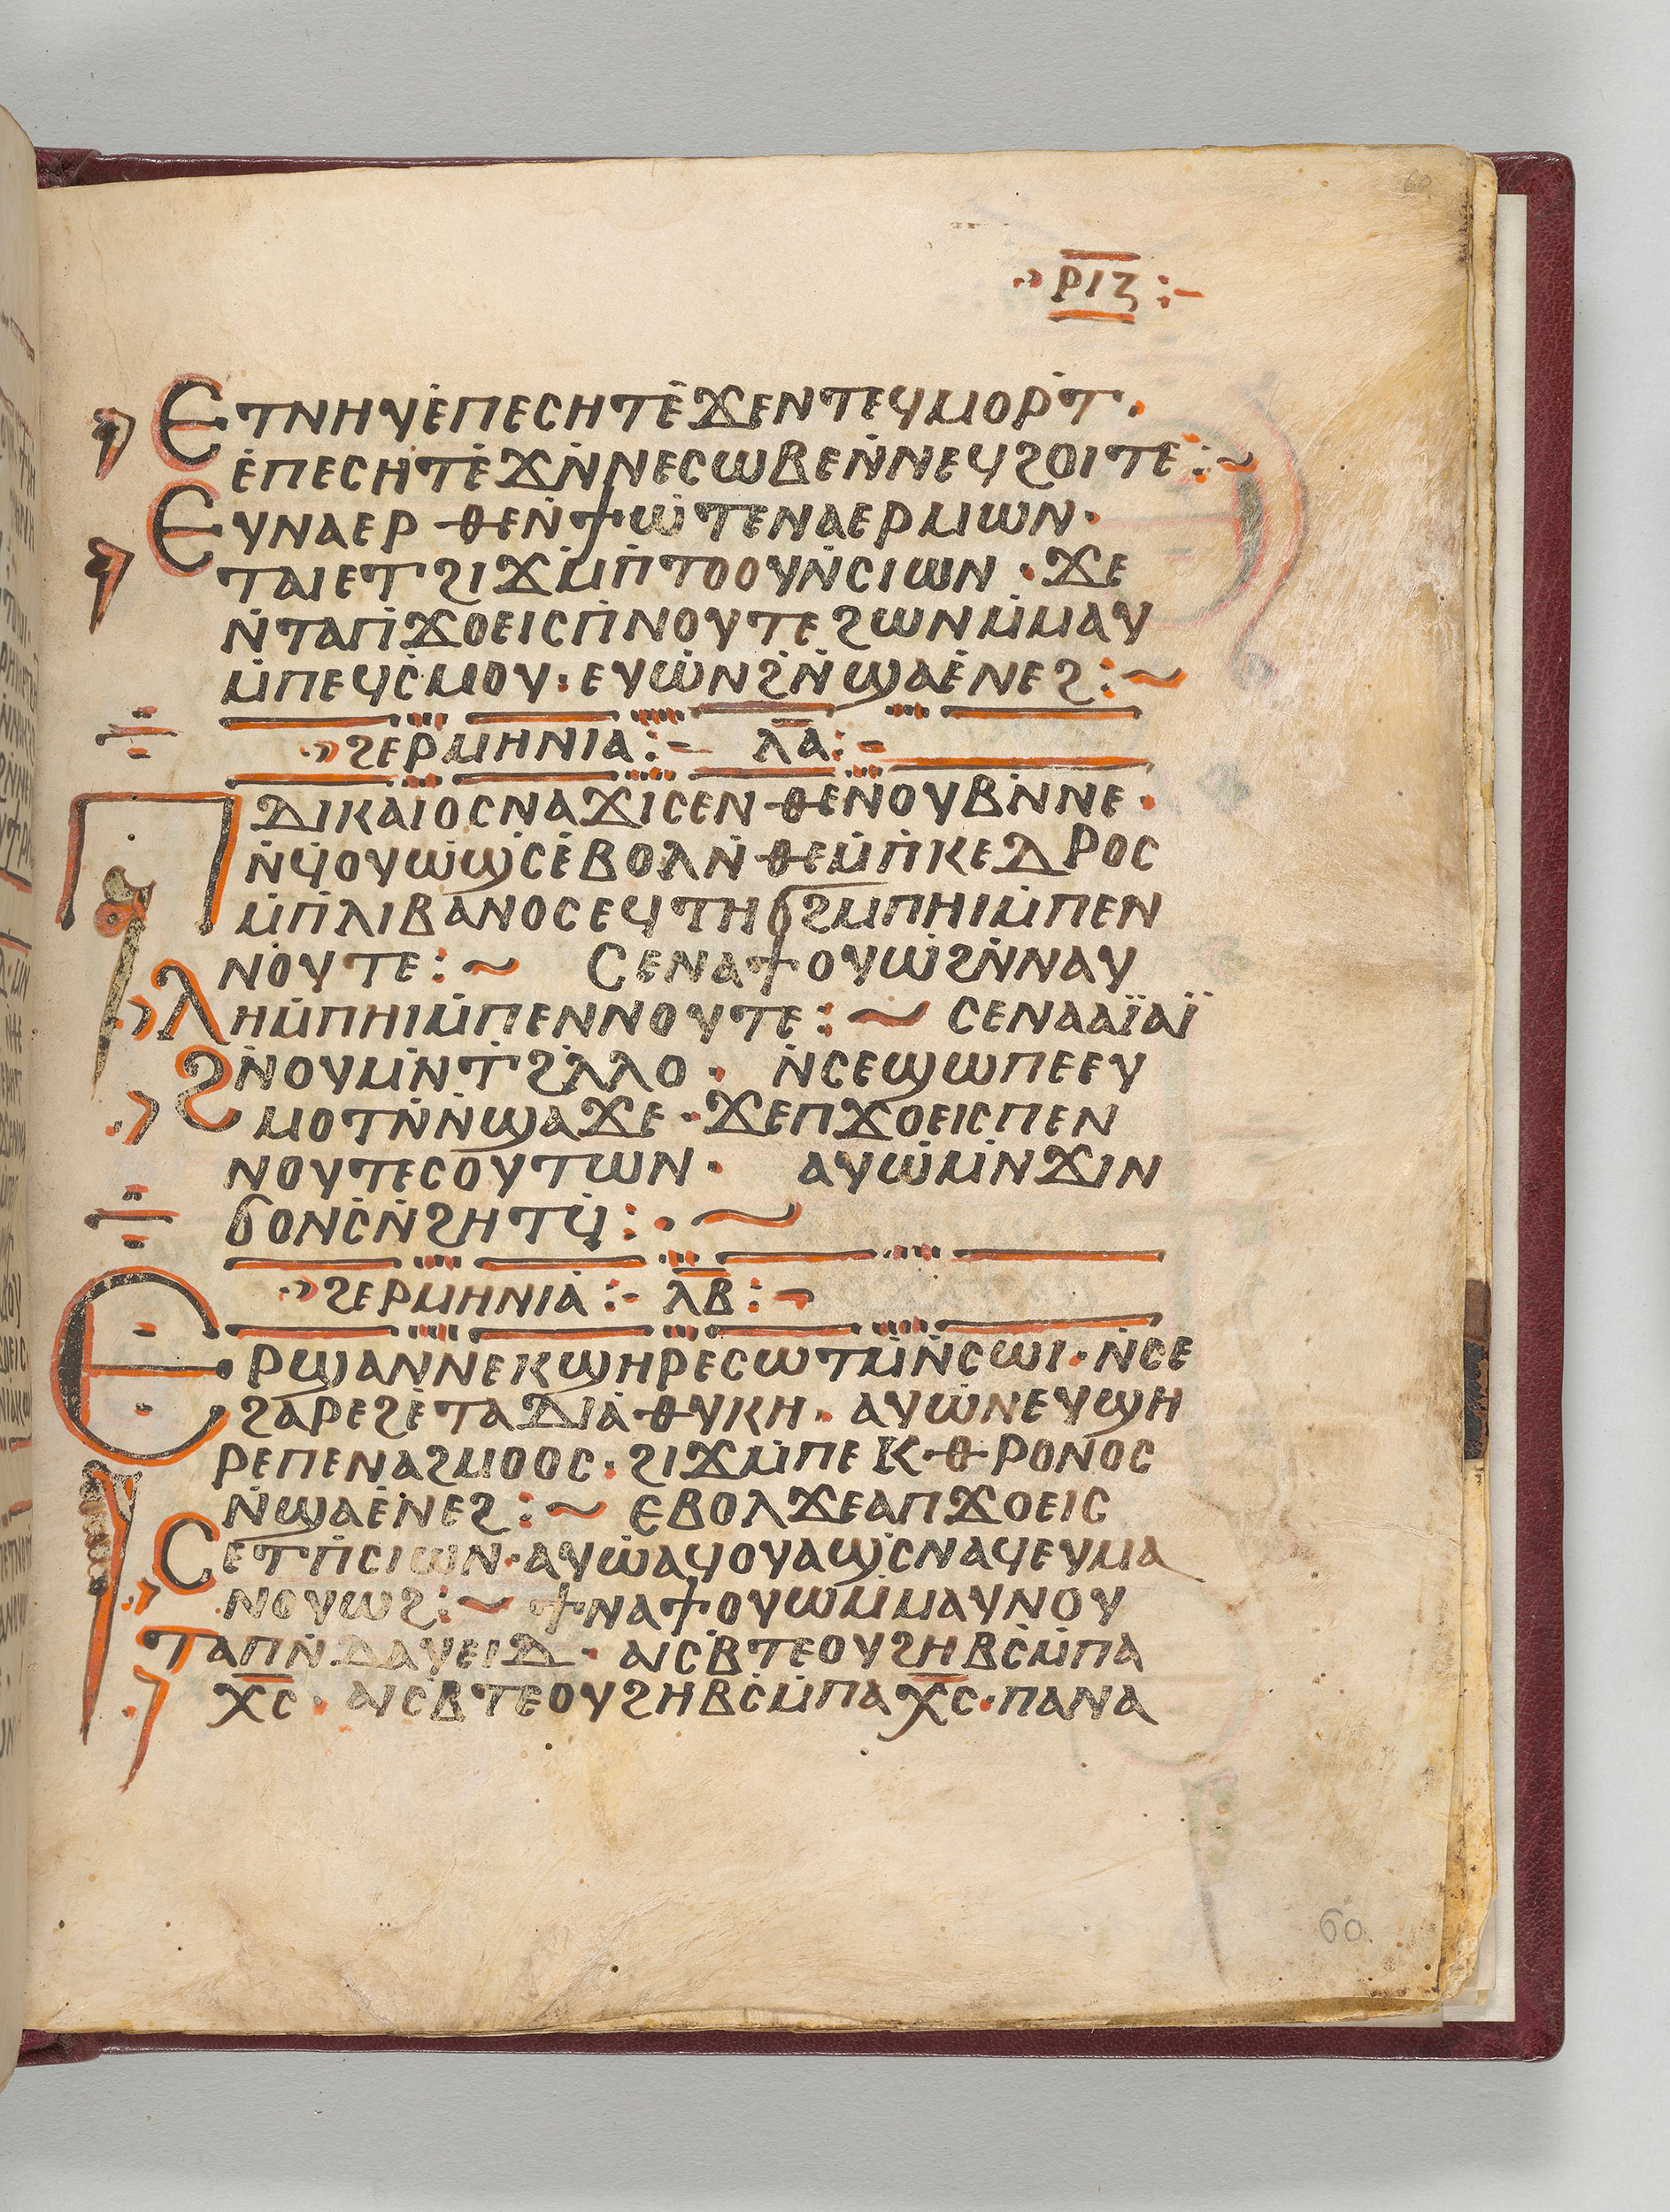 60
ⲣⲓⲍ :-
Ⲉⲧⲛⲏⲩⲉ̇ⲡⲉⲥⲏⲧⲉ̇ϫⲉⲛⲧⲉϥⲙⲟⲣⲧ̇ ·
ⲉ̇ⲡⲉⲥⲏⲧⲉ̇ϫⲛ̇ⲛⲉⲥⲱⲃⲉⲛ̇ⲛⲉϥϩⲟⲓⲧⲉ :~
Ⲉⲩⲛⲁⲉⲣ ⲑⲉⲛ̇ϯⲱ̇ⲧⲉⲛⲁⲉⲣⲙⲱⲛ ·
ⲧⲁⲓⲉⲧϩⲓϫⲙ̇ⲡ̇ⲧⲟⲟⲩⲛ̇ⲥⲓⲱⲛ · ϫⲉ
ⲛ̇ⲧⲁⲡ̇ϫⲟⲉⲓⲥⲡ̇ⲛⲟⲩⲧⲉϩⲱⲛⲙ̇ⲙⲁⲩ
ⲙ̇ⲡⲉϥⲥ̇ⲙⲟⲩ · ⲉⲩⲱ̇ⲛϩ̇ⲛ̇ϣⲁⲉ̇ⲛⲉϩ :~
ϩⲉⲣⲙⲏⲛⲓⲁ :- ⲗ̅ⲁ̅ :-
Ⲡⲇⲓⲕⲁⲓⲟⲥⲛⲁϫⲓⲥⲉⲛ ⲑⲉⲛⲟⲩⲃⲛ̇ⲛⲉ ·
ⲛ̇ϥ̇ⲟⲩⲱ̇ϣⲥⲉ̇ⲃⲟⲗⲛ̇ ⲑⲉⲙ̇ⲡ̇ⲕⲉⲇⲣⲟⲥ
ⲙ̇ⲡ̇ⲗⲓⲃⲁⲛⲟⲥⲉϥⲧⲏϭϩⲙⲡⲏⲓⲙ̇ⲡⲉⲛ
ⲛⲟⲩⲧⲉ :~ Ⲥⲉⲛⲁϯⲟⲩⲱ̇ϩⲛ̇ⲛⲁⲩ
Ⲗⲏⲙ̇ⲡⲏⲓⲙ̇ⲡⲉⲛⲛⲟⲩⲧⲉ :~ ⲥⲉⲛⲁⲁⲓ̈ⲁⲓ̈
Ϩⲛ̇ⲟⲩⲙⲛ̇ⲧ̇ϩⲗ̇ⲗⲟ · ⲛ̇ⲥⲉϣⲱⲡⲉⲉⲩ
ⲙⲟⲧⲛ̇ⲛ̇ϣⲁϫⲉ · ϫⲉⲡϫⲟⲉⲓⲥⲡⲉⲛ
ⲛⲟⲩⲧⲉⲥⲟⲩⲧⲱⲛ · ⲁⲩⲱ̇ⲙ̇ⲛϫⲓⲛ
ϭⲟⲛⲥ̇ⲛ̇ϩⲏⲧϥ̇ :·~
ϩⲉⲣⲙⲏⲛⲓⲁ :- ⲗ̅ⲃ̅ :-
Ⲉⲣϣⲁⲛⲛⲉⲕϣⲏⲣⲉⲥⲱⲧⲙ̇ⲛ̇ⲥⲱⲓ · ⲛ̇ⲥⲉ
ϩⲁⲣⲉϩⲉ̇ⲧⲁⲇⲓⲁ̇ⲑⲩⲕⲏ · ⲁⲩⲱ̇ⲛⲉⲩϣⲏ
ⲣⲉⲡⲉⲛⲁϩⲙⲟⲟⲥ · ϩⲓϫⲙ̇ⲡⲉⲕⲑⲣⲟⲛⲟⲥ
ⲛ̇ϣⲁⲉ̇ⲛⲉϩ :~ ⲉⲃⲟⲗϫⲉⲁⲡϫⲟⲉⲓⲥ
Ⲥⲉⲧⲡ̇ⲥⲓⲱⲛ · ⲁⲩⲱ̇ⲁϥⲟⲩⲁϣⲥ̇ⲛⲁϥⲉⲩⲙⲁ
ⲛⲟⲩⲱϩ :~ ϯⲛⲁϯⲟⲩⲱⲙ̇ⲙⲁⲩⲛⲟⲩ
Ⲧⲁⲡⲛ̇ⲇⲁⲩⲉⲓⲇ · ⲁⲓⲥⲃ̇ⲧⲉⲟⲩϩⲏⲃⲥ̇ⲙ̇ⲡⲁ
ⲭ̅ⲥ̅ · ⲁⲓⲥⲃ̇ⲧⲉⲟⲩϩⲏⲃⲥ̇ⲙ̇ⲡⲁⲭ̅ⲥ̅ · ⲡⲁⲛⲁ
60